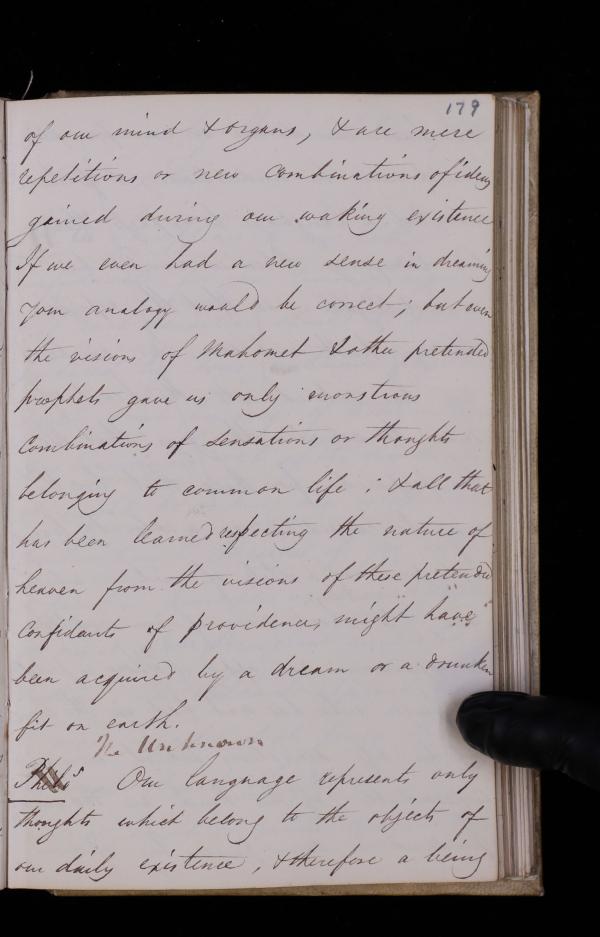 179
of our mind & organs, & are mere
repetitions or new combinations of ideas
gained during our waking existence
If we even had a new sense in dreaming
your analogy would be correct; but even
the visions of Mahomet & other pretended
prophets gave us only monstrous
combinations of sensations or thoughts
belonging to common life; & all that
has been learned respecting the nature of
heaven from the visions of these pretended
confidants of providence, might have
been acquired by a dream or a drunken
fit on earth.
The Unknown
Our language represents only
thoughts which belong to the objects of
our daily existence, & therefore a being